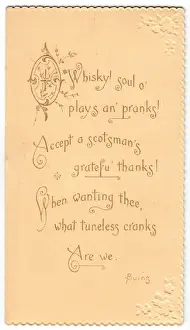 O Whisky! soul o'
plays an' pranks!
Accept a scotsman's
gratefu' thanks!
When wanting thee,
what tuneless cranks
Are we.
Burns